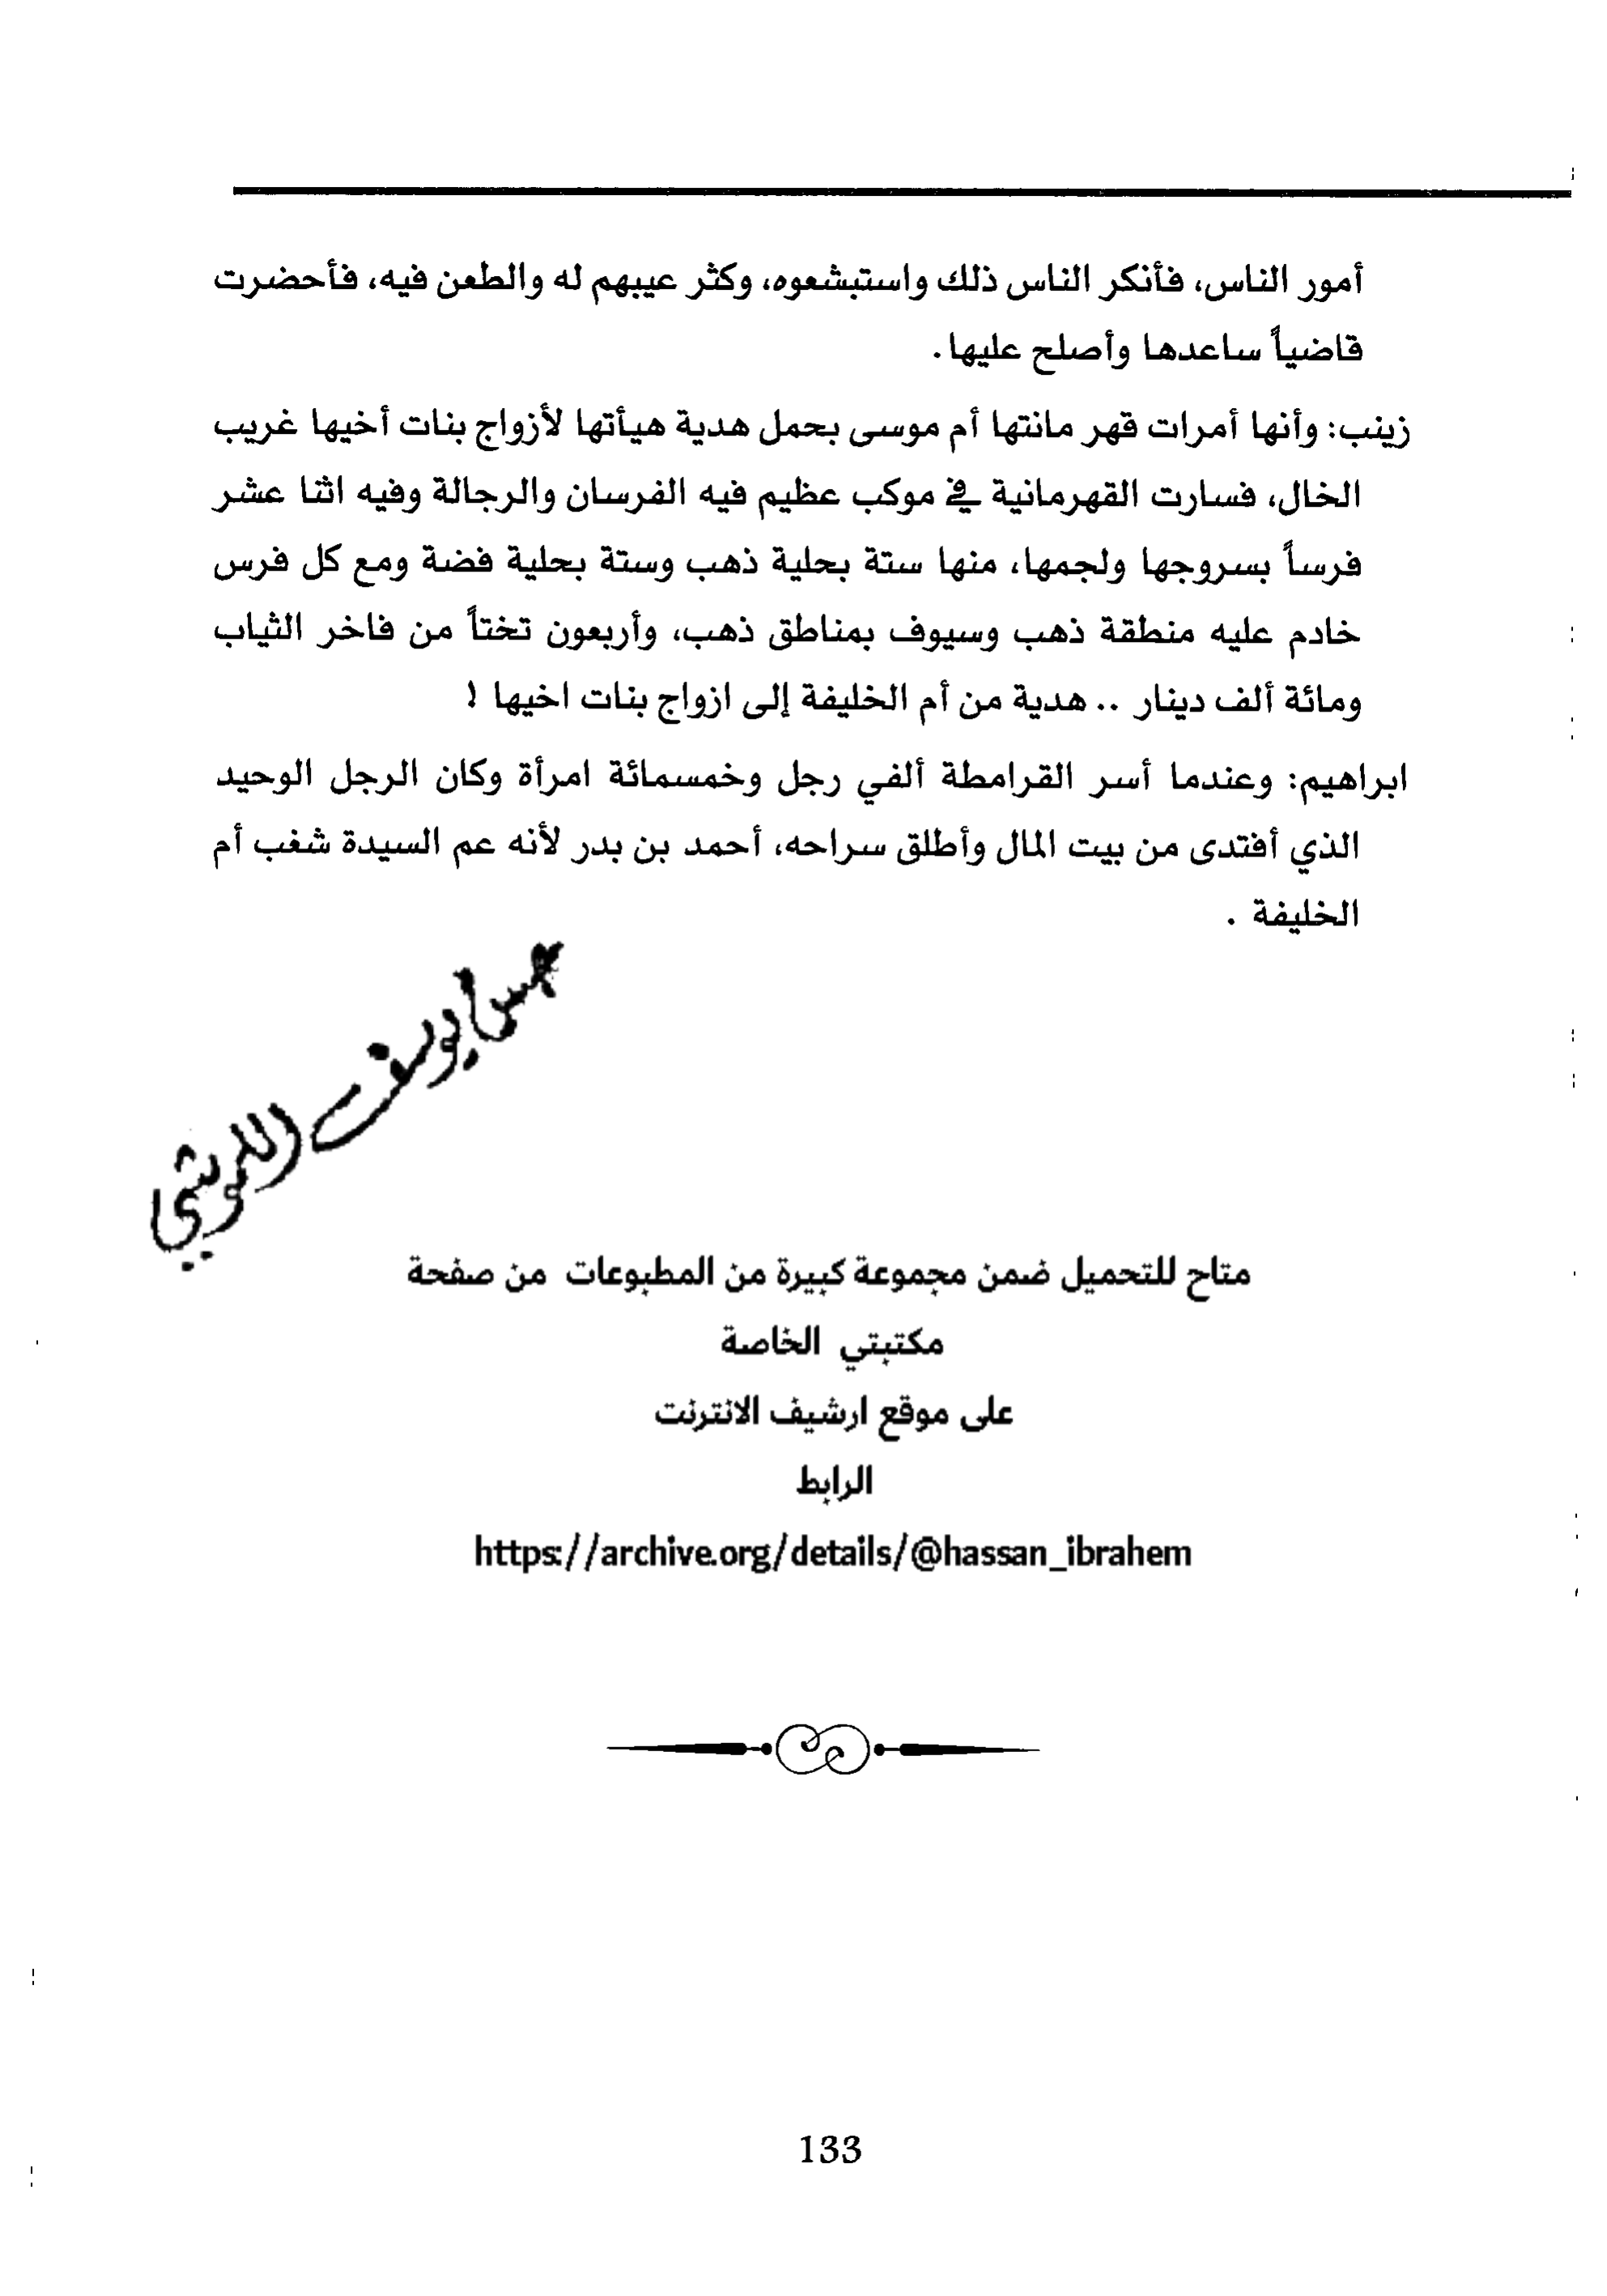 أمور الناس، فأنكر الناس ذلك واستبشعوه، وكثر عيبهم له والطعن فيه، فأحضرت
قاضياً ساعدها وأصلح عليها.
زينب: وأنها أمرات قهر مانتها أم موسى بحمل هدية هيأتها لأزواج بنات أخيها غريب
الخال، فسارت القهرمانية في موكب عظيم فيه الفرسان والرجالة وفيه اثنا عشر
فرساً بسروجها ولجمها، منها ستة بحلية ذهب وستة بحلية فضة ومع كل فرس
خادم عليه منطقة ذهب وسيوف بمناطق ذهب، وأربعون تختاً من فاخر الثياب
ومائة ألف دينار .. هدية من أم الخليفة إلى ازواج بنات اخيها !
ابراهيم: وعندما أسر القرامطة ألفي رجل وخمسمائة امرأة وكان الرجل الوحيد
الذي أفتدى من بيت المال وأطلق سراحه، أحمد بن بدر لأنه عم السيدة شغب أم
الخليفة .
يوسف
متاح للتحميل ضمن مجموعة كبيرة من المطبوعات من صفحة
مكتبتي الخاصة
على موقع ارشيف الانترنت
الرابط
https://archive.org/details/@hassan_ibrahem
133